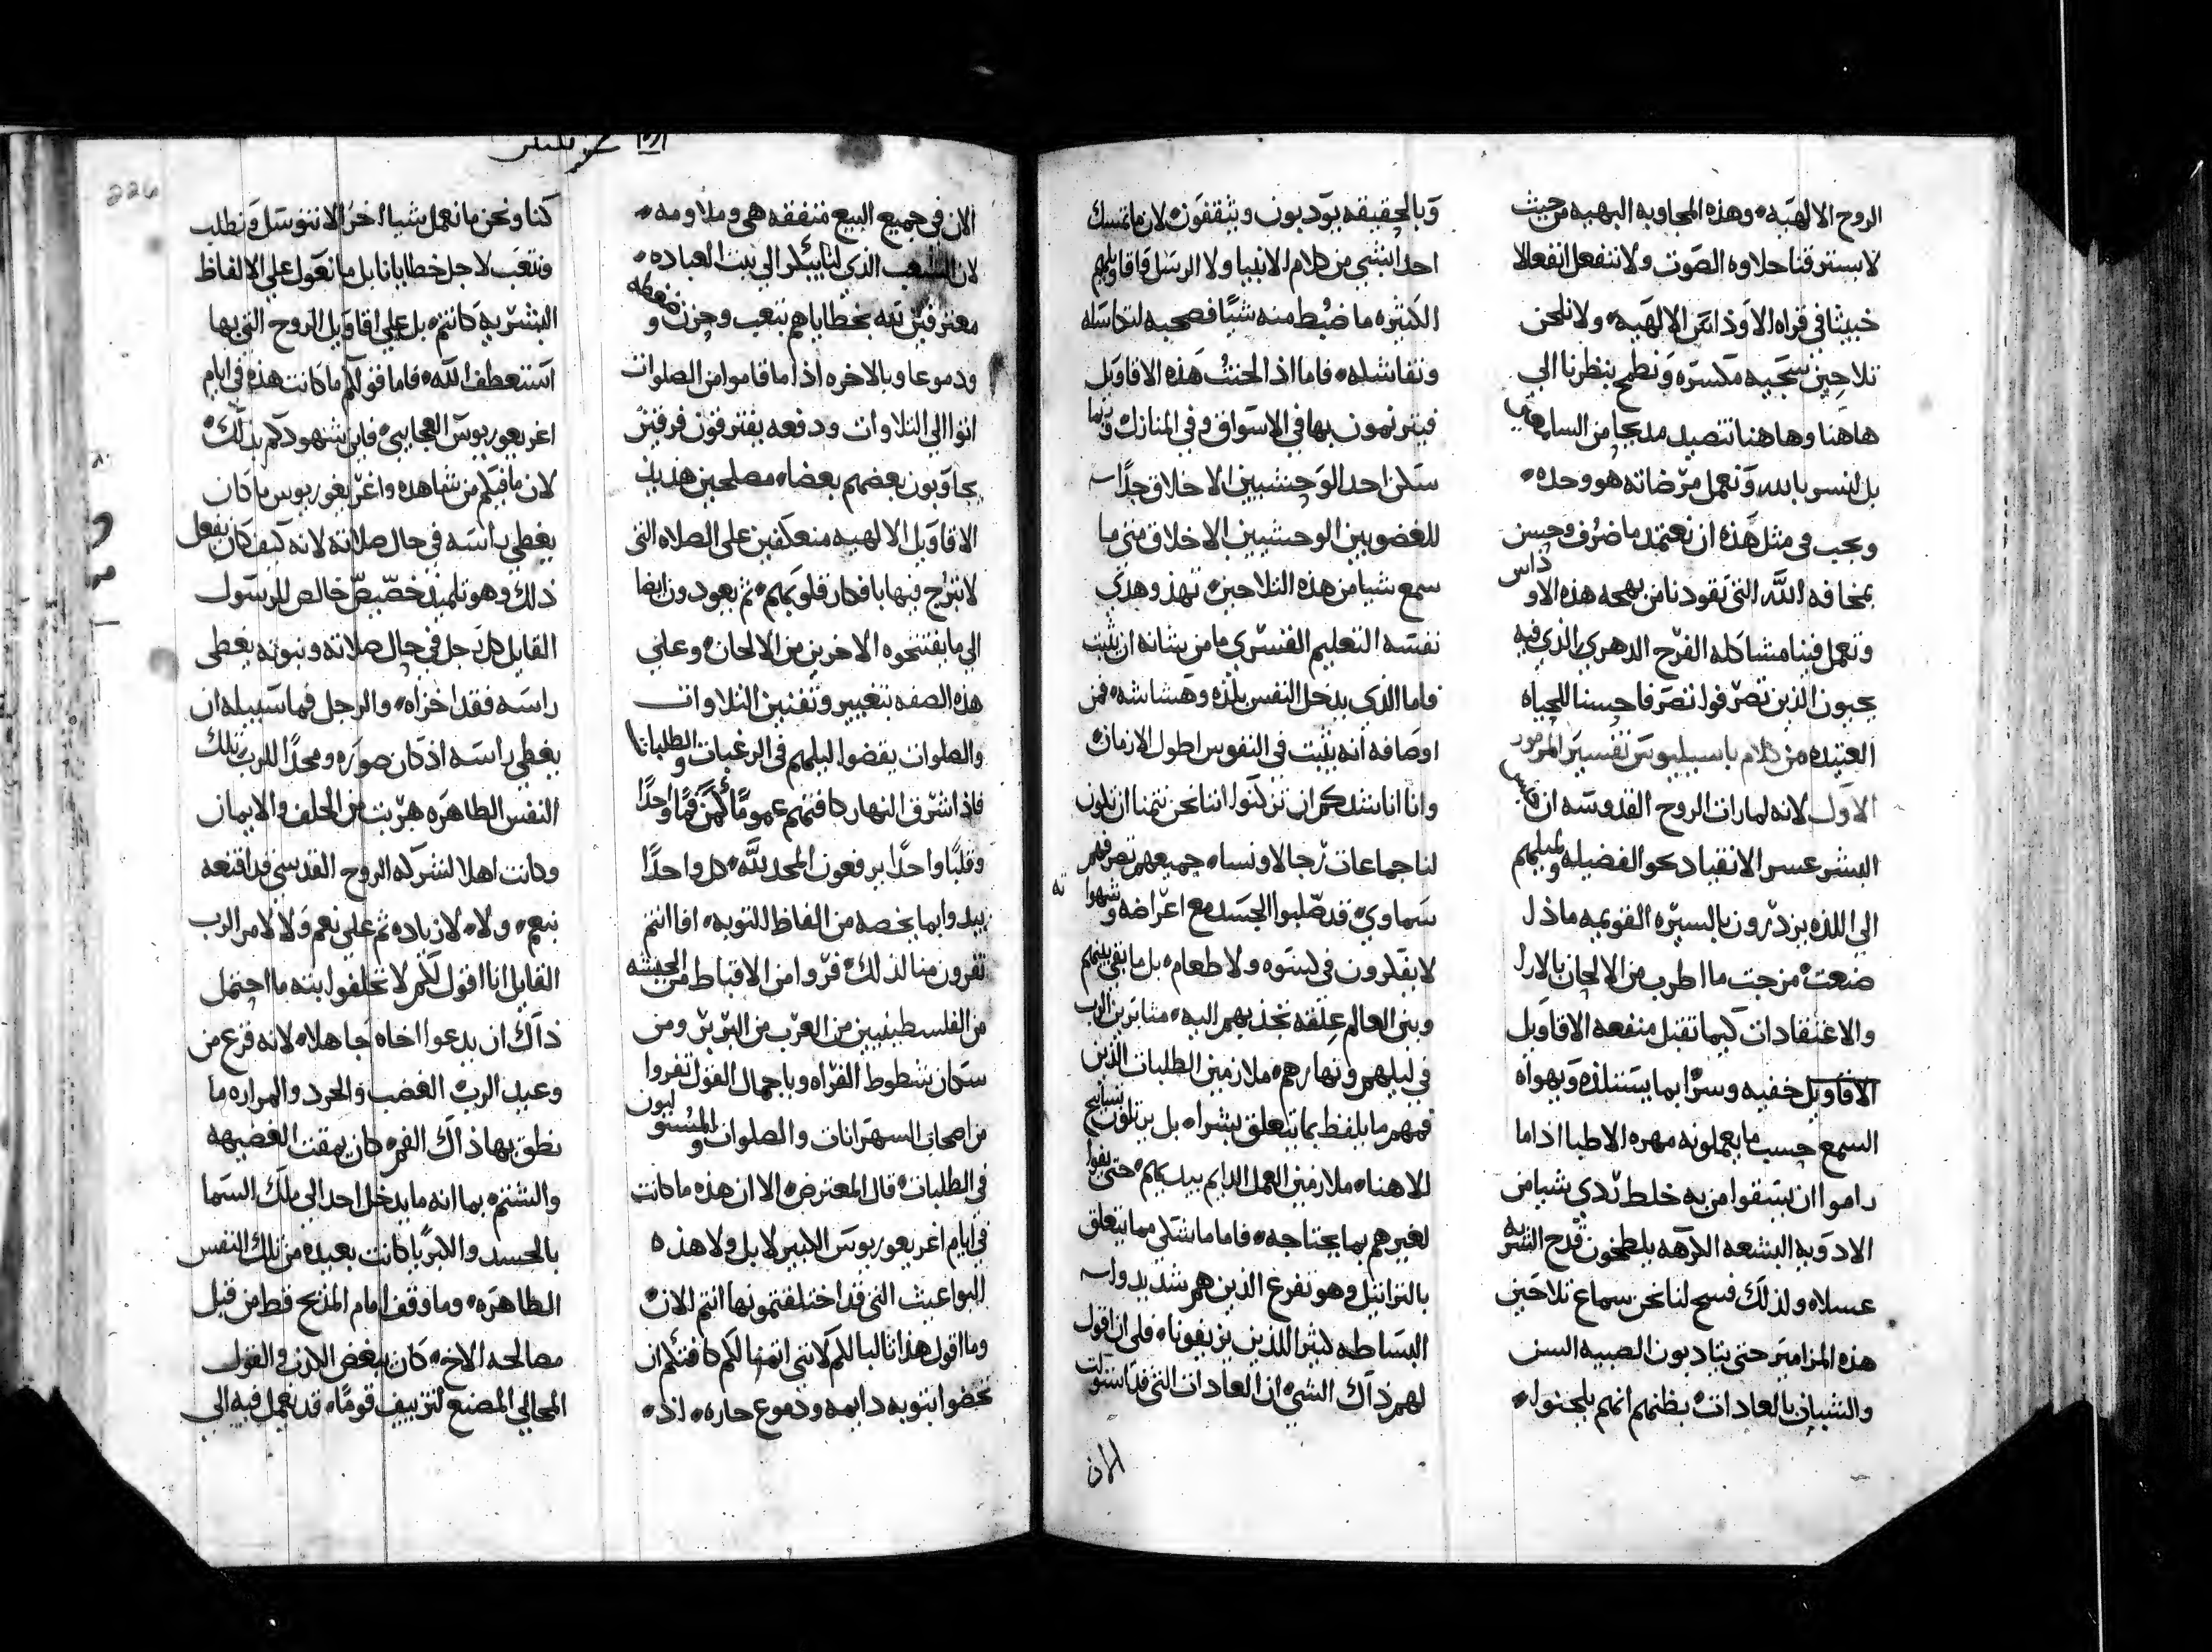 الروح الالهيه، وهذه المجاوبه البهيه من حيث
لا يسترقنا حلاوه الصوت ولا ننفعل انفعالا
خبيثا في قراه الاوذاس الالهيه، ولا نلحن
تلاحين سجيه مكسره ونطمح بنظرنا الي
هاهنا وهاهنا نتصيد مديحا من السامعين
بل لنسر بالله ونعمل مرضاته هو وحده،
ويجب في مثل هذه ان نعتمد ما ضرف وحسن
بمخافه الله التي تقودنا من بهجه هذه الاوذاس
وتعمل فينا مشاكله الفرح الدهري الذي فيه
يحبون الذين تصرفوا تصرفا حسنا للحياه
العتيده من كلام باسيليوس تفسير المزمور
الاول لانه لما رات الروح القدوسه ان جنس
البشر عسر الانقياد نحو الفضيله ولميلهم
الي اللذه يزدرون بالسيره القويمه ماذا
صنعت، مزجت ما اطرب من الالحان بالارا
والاعتقادات كيما تقبل منفعه الاقاويل
الاقاويل خفيه وسرا بما يستلذه ويهواه
السمع حسب ما يعملونه مهره الاطبا اذا ما
راموا ان يسقوا من به خلط ردي شيا من
الادويه البشعه الكرهه يلطخون قدح الشربه
عسلا، ولذلك فسح لنا نحن سماع تلاحين
هذه المزامير حتى يتادبون الصبيه السن
والشبان بالعادات، بظنهم انهم يلحنوا،
وبالحقيقه يودبون ويثقفون، لان ما تمسك
احدا بشي من كلام الانبيا ولا الرسل فاقاويلهم
الكثيره ما ضبط منه شيا فصحيه لتكاسله
وتفاشله، فاما اذا لحنت هذه الاقاويل
فيترنمون بها في الاسواق وفي المنازل، وربما
سكن احد الوحشيين الاخلاق جدا
للغضوبين الوحشيين الاخلاق متى ما
سمع شيا من هذه التلاحين، تهذ وهدي
نفسه التعليم القسري ما من شانه ان يثبت
فاما الذي يدخل النفس بلذه وهشاشه، فمن
اوصافه انه يثبت في النفوس اطول الازمان،
وانا اناشدكم ان تتركنوا اننا نحن نتمنا ان تكون
لنا جماعات رجالا ونسا، جميعهم تصرفهم
سماوي، قد صلبوا الجسد مع اعراضه وشهواته
لا يفكرون في كسوه ولا طعام، بل ما بقي بينهم
وبين العالم علقه تجذبهم اليه، مثابرين الرب
في ليلهم ونهارهم، ملازمين الطلبات الذين
فمهم ما يلفظ بما يتعلق بشرا، بل يرتلون تسابيح
للاهنا، ملازمين العمل الدايم بيديهم، حتى يفوا
لغيرهم بما يحتاجه، فاما ما شكي مما يتعلق
بالتراتيل وهو تفرع الذين هم شديدوا
البساطه كثير اللذين يزيفونا، فلي ان اقول
لهم ذاك الشي، ان العادات التي قد استولت
الان
الان في جميع البيع متفقه هي وملاومه،
لان الشعب الذي لنا يبتكر الي بيت العباده،
معترفين لله بخطاياهم بتعب وحزن وضغطه
ودموعا وبالاخره اذا ما قاموا من الصلوات
اتوا الي التلاوات ودفعه يفترقون فرقتين
يجاوبون بعضهم بعضا، مصلحين هذيذ
الاقاويل الالهيه منعكفين على الصلاه التي
لا تترج فيها بافكار قلوبهم، ثم يعودون ايضا
الي ما يفتتحوه الاخرين من الالحان، وعلي
هذه الصفه بتغيير وتفنين التلاوات
والصلوات يقضوا ليلهم في الرغبات والطلبات
فاذا اشرق النهار كافتهم عموما كمن فما واحدا
وقلبا واحدا يرفعون المجد لله، كل واحدا
يبدوا بما يخصه من الفاظ للتوبه، افا انتم
تفرون منا لذلك، فروا من الاقباط من الحبشه
من الفلسطينيين من العرب من البربر ومن
سكان شطوط الفراه وباجمال القول تفروا
من اصحاب السهرانات والصلوات والمستويون
في الطلبات، قال المعترض، الا ان هذه ما كانت
في ايام اغريغوريوس الكبير لا بل ولا هذه
البواعيث التي قد اختلفتمونها انتم الان،
وما اقول هذا ثالبا لكم لانني اتمنا لكم كافتكم ان
تحضوا بتوبه دايمه ودموع حاره، اذ،
كنا ونحن ما نعمل شيا اخر الا نتوسل ونطلب
ونتعب لاجل خطايانا بل ما نعول على الالفاظ
البشريه كانتم، بل على اقاويل الروح التي بها
استعطف الله، فاما قولكم ما كانت هذه في ايام
اغريغوريوس العجايبي، فاين شهودكم بذلك،
لان ما فيكم من شاهده واغريغوريوس ما كان
يغطي راسه في حال صلاته لانه كيف كان يفعل
ذلك وهو تلميذ خصيص خالص للرسول
القايل كل رجل في حال صلاته ونبوته يغطي
راسه فقد اخزاه، والرجل فما سبيله ان
يغطي راسه اذ كان صوره ومجدا للرب تلك
النفس الطاهره هربت من الحلف والايمان
وكانت اهلا لشركه الروح القدسي قد اقنعه
بنعم، ولا، لا زياده ثم على نعم ولا لامر الرب
القايل انا اقول لكم لا تحلفوا بته ما احتمل
ذاك ان يدعوا اخاه جاهلا، لانه فزع من
وعيد الرب الغضب والحرد والمراره ما
نطق بها ذاك الفم، كان يمقت الغضبه
والشتم، بما انه ما يدخل احد الي ملك السما
بالحسد والكبريا كانت بعيده من تلك النفس
الطاهره، وما وقف امام المذبح قط من قبل
مصالحه الاخ، كان يبغض الكذب والقول
المحالي المصنع لتزييف قوما، قد يعمل فيه الي